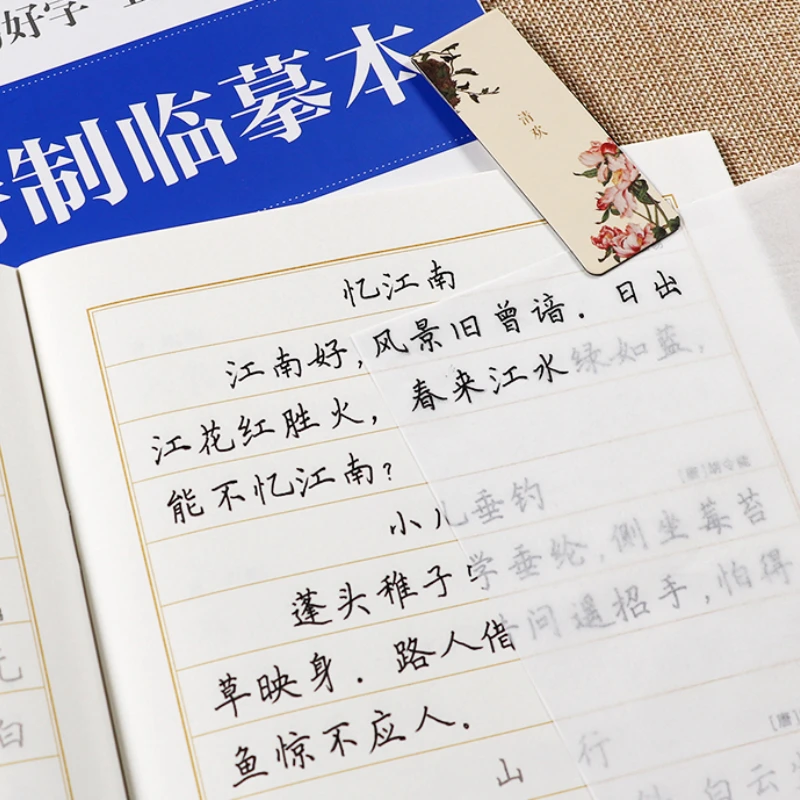 好字
制临摹本
清欢
忆江南
江南好,风景旧曾谙.日出
江花红胜火,春来江水绿如蓝,
能不忆江南?
小儿垂钓
[唐]胡令能
蓬头稚子学垂纶,侧坐莓苔
草映身.路人借问遥招手,怕得
鱼惊不应人.
[唐]
山行
白云
元
白